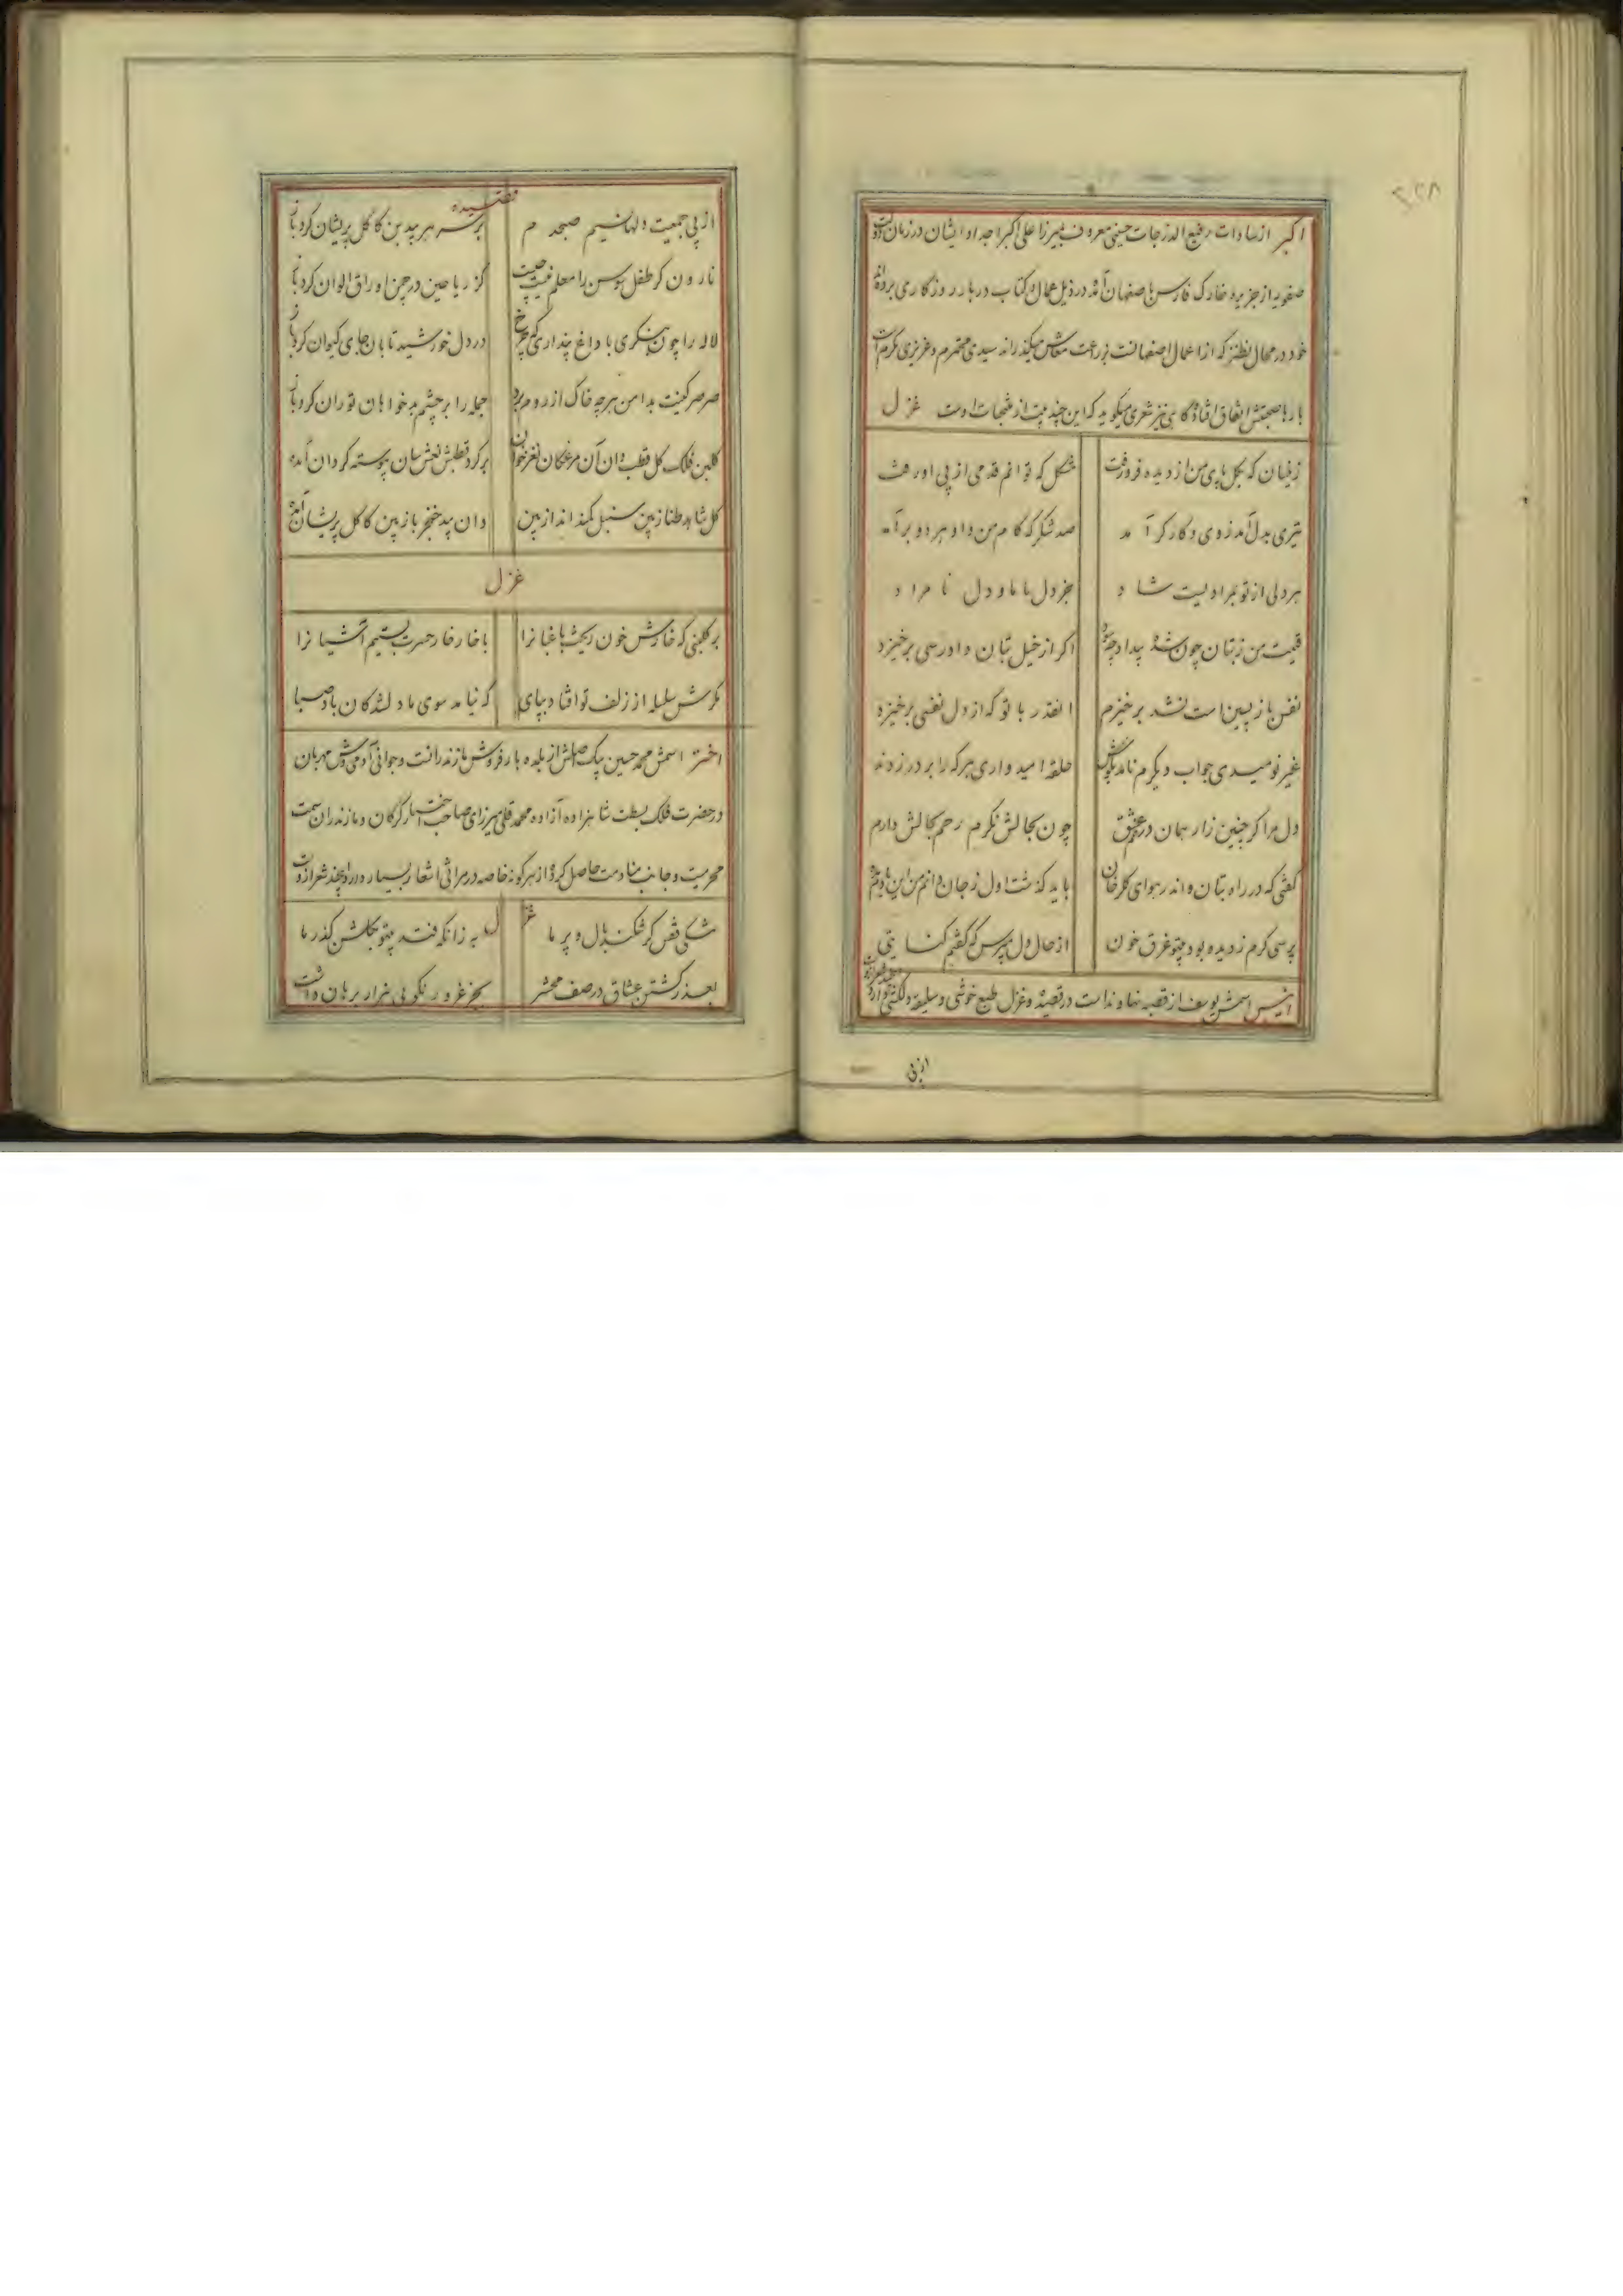 ۲۲۸
اکبر از سادات رفیع الدرجات حسینی معروف بمیرزا علی اکبر اجداد ایشان در زمان دولت
صفویه از جزیره خارک فارس باصفهان آمده در ذیل عمال و کتاب دربار روزگاری برده‌اند
خود در محال نطنز که از اعمال اصفهانست بزراعت معاش میگذراند سیدی محترم و عزیزی مکرم است
بارها صحبتش اتفاق افتاد گاهی نیز شعری میگوید که این چند بیت از منتخبات اوست غزل
زینسان که بگل پای من از دیده فرو رفت مشکل که توانم قدمی از پی او رفت
تیری بدل آمد ز وی و کارگر آمد صد شکر که کام من و او هر دو بر آمد
هر دلی از تو بمرادیست شاد جز دل ما ما و دل نامراد
قیمت من ز بتان چون شده پیدا اگر از خیل بتان دادرسی برخیزد
نفس بازپسین است نشد برخیزم آنقدر با تو که از دل نفسی برخیزد
غیر نومیدی جواب دیگرم نامد بگوش حلقهٔ امیدواری هر که را بر در زدند
دل مرا گر چنین زار بماند در عشق چون بحالش نگرم رحم بحالش دارم
گفتی که در راه بتان و اندر هوای گلرخان باید گذشت اول ز جان دانم من این
پرسی گرم ز دیده بود چو غرق خون از حال دل مپرس که گفتیم کنایتی
انیس اسمش یوسف از قصبه نهاوند است در قصیده و غزل طبع خوشی و سلیقه دلکشی دارد
از پی
قصیده
از پی جمعیت دلها نسیم صبحدم بر سر هر بیدبن کاکل پریشان کرد باز
نارون گر طفل سوسن را معلم نیست چیست کز ریاحین در چمن اوراق الوان کرد باز
لاله را چون بنگری با داغ پنداری که چرخ در دل خورشید تابان جای کیوان کرد باز
صرصر کینت بدامن هر چه خاک از روم برد جمله را بر چشم بدخواهان توران کرد باز
گلبن فلک گل قطب دان آن مرغکان نغزخوان بر گرد قطبش نعش‌سان پیوسته گردان آمده
گل شاهد طناز بین سنبل کمند انداز بین وان بید خنجرباز بین کاکل پریشان آمده
غزل
بر گلبنی که خارش خون ریخت باغبانرا با خار خار حسرت بستیم آشیانرا
مگرش سلسله از زلف تو افتاد بپای که نیامد سوی ما دلشدگان باد صبا
اختر اسمش محمد حسین بیک اصلش از بلده بارفروش مازندرانست و جوانی آدمی‌وش مهربان
در حضرت فلک بسطت شاهزاده آزاده محمد قلی میرزای صاحب اختیار گرگان و مازندران سمت
محرمیت و جانب منادمت حاصل کرده از هر گونه خاصه در مراثی اشعار بسیار دارد این چند شعر از اوست
غزل
مشکی قفس گر شکند بال و پر ما به زانکه فتد بیتو بگلشن گذر ما
بعذر کشتن عشاق در صف محشر بجز غرور نکویی هزار برهان داشت